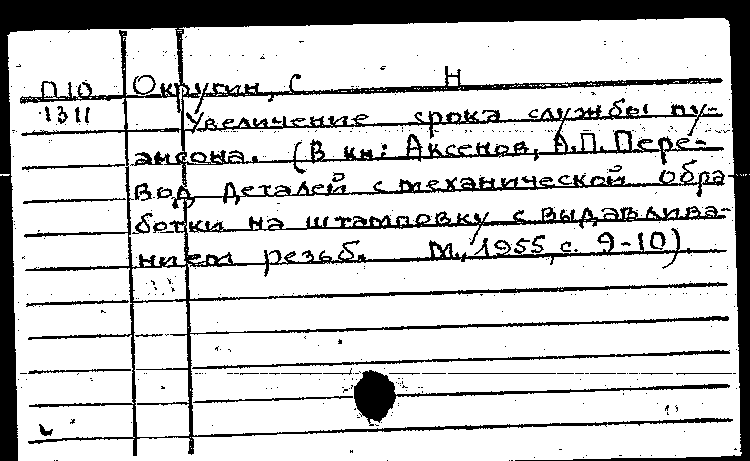 П10 Округин, С Н
1311 Увеличение срока службы пу-
ансона. (В кн: Аксенов, А.П. Пере-
вод деталей с механической обра
ботки на штамповку с выдавлива-
нием резьб. М., 1955, с. 9-10).